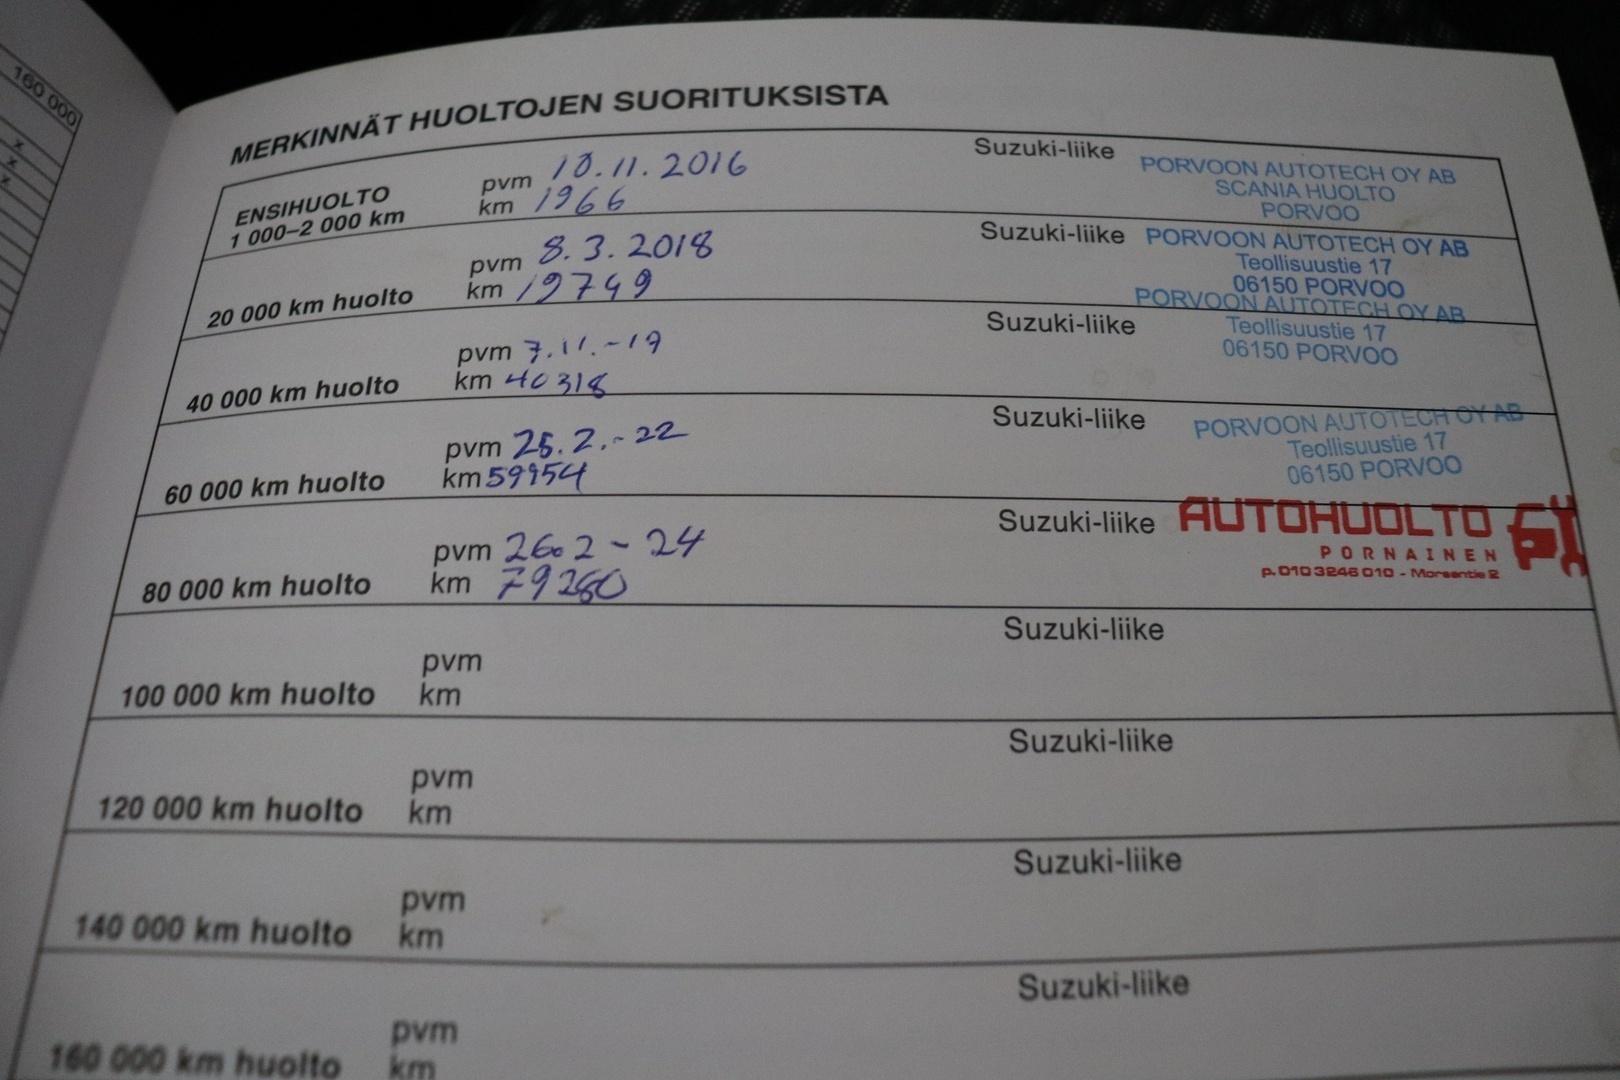 160 000
x
x
x
MERKINNÄT HUOLTOJEN SUORITUKSISTA
ENSIHUOLTO
1 000–2 000 km
pvm 10.11.2016
km 1966
Suzuki-liike
PORVOON AUTOTECH OY AB
SCANIA HUOLTO
PORVOO
20 000 km huolto
pvm 8.3.2018
km 19749
Suzuki-liike
PORVOON AUTOTECH OY AB
Teollisuustie 17
06150 PORVOO
40 000 km huolto
pvm 7.11.-19
km 40318
Suzuki-liike
PORVOON AUTOTECH OY AB
Teollisuustie 17
06150 PORVOO
60 000 km huolto
pvm 25.2.-22
km 59954
Suzuki-liike
PORVOON AUTOTECH OY AB
Teollisuustie 17
06150 PORVOO
80 000 km huolto
pvm 26.2-24
km 79260
Suzuki-liike
AUTOHUOLTO
PORNAINEN
p. 010 3246 010 - Morsantie 2
100 000 km huolto
pvm
km
Suzuki-liike
120 000 km huolto
pvm
km
Suzuki-liike
140 000 km huolto
pvm
km
Suzuki-liike
160 000 km huolto
pvm
km
Suzuki-liike